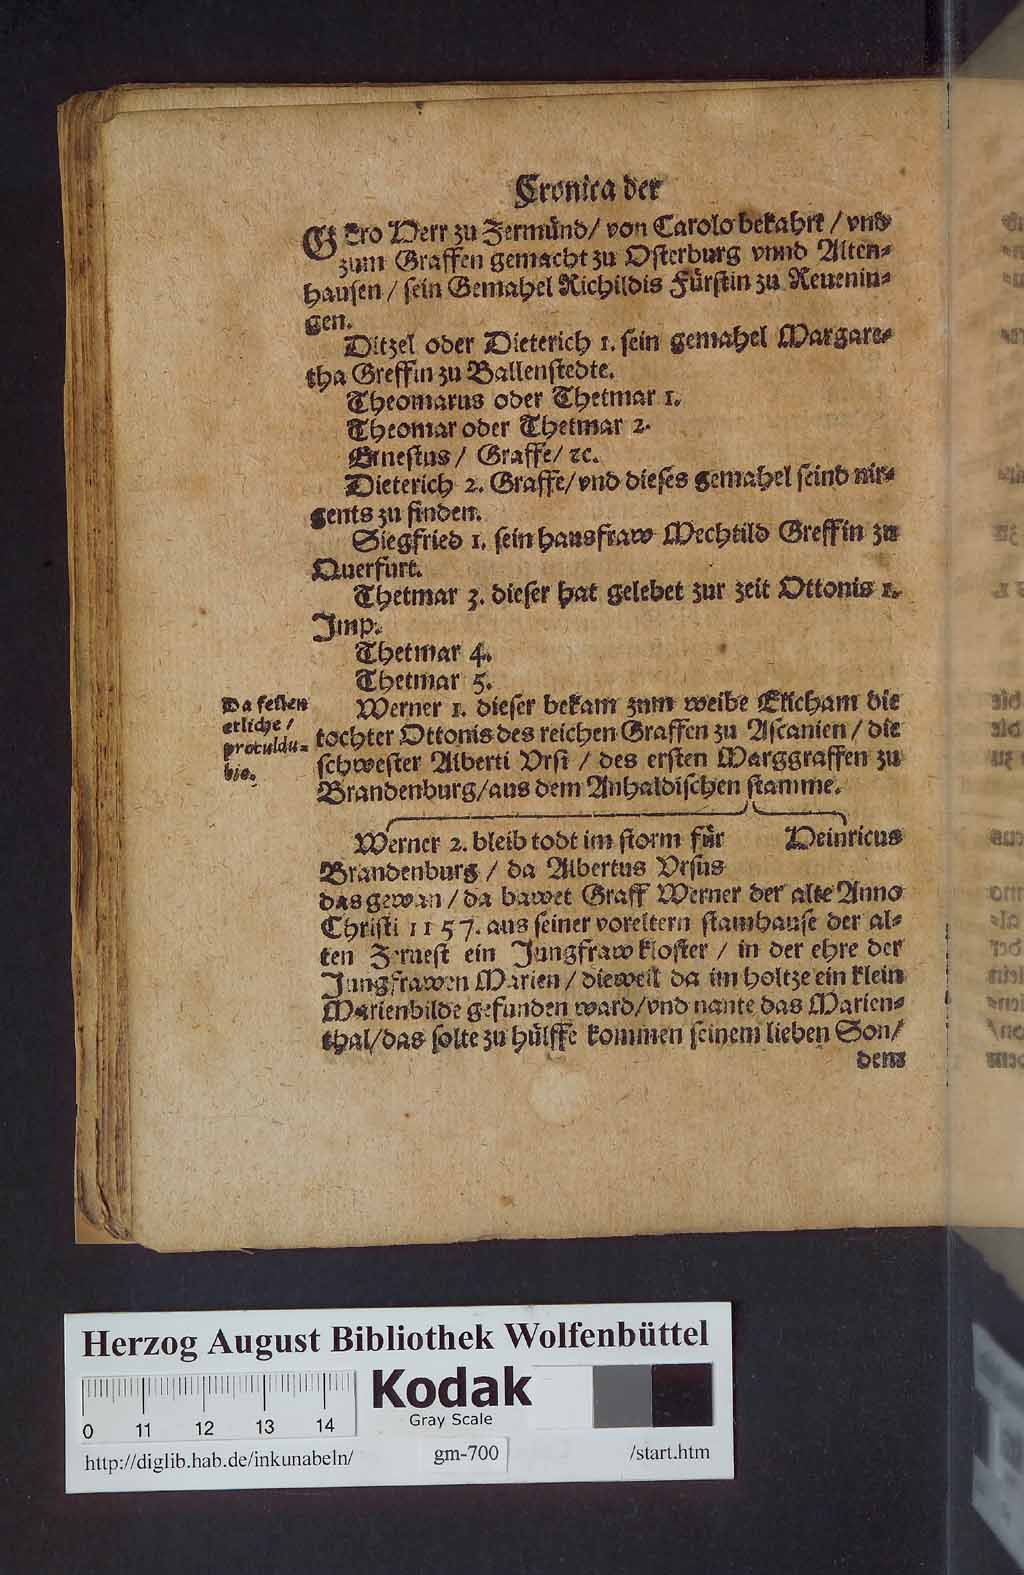 Cronica der
GEro Herr zu Zermünd / von Carolo bekahrt / vnd
zum Graffen gemacht zu Osterburg vnnd Alten-
hausen / sein Gemahel Richildis Fürstin zu Reuenin-
gen.
Ditzel oder Dieterich 1. sein gemahel Margare-
tha Greffin zu Ballenstedte.
Theomarus oder Thetmar 1.
Theomar oder Thetmar 2.
Ernestus / Graffe / ꝛc.
Dieterich 2. Graffe / vnd dieses gemahel seind nir-
gents zu finden.
Siegfried 1. sein hausfraw Mechtild Greffin zu
Querfurt.
Thetmar 3. dieser hat gelebet zur zeit Ottonis 1.
Imp.
Thetmar 4.
Thetmar 5.
Da feilen
etliche /
proculdu-
bio.
Werner 1. dieser bekam zum weibe Elicham die
tochter Ottonis des reichen Graffen zu Ascanien / die
schwester Alberti Vrsi / des ersten Marggraffen zu
Brandenburg / aus dem Anhaldischen stamme.
Werner 2. bleib todt im storm für Heinricus
Brandenburg / da Albertus Vrsus
das gewan / da bawet Graff Werner der alte Anno
Christi 1157. aus seiner voreltern stamhause der al-
ten ein Jungfraw kloster / in der ehre der
Jungfrawen Marien / dieweil da im holtze ein klein
Marienbilde gefunden ward / vnd nante das Marien-
thal / das solte zu hülffe kommen seinem lieben Son /
dem
Herzog August Bibliothek Wolfenbüttel
Kodak
Gray Scale
0 11 12 13 14
http://diglib.hab.de/inkunabeln/ gm-700 /start.htm